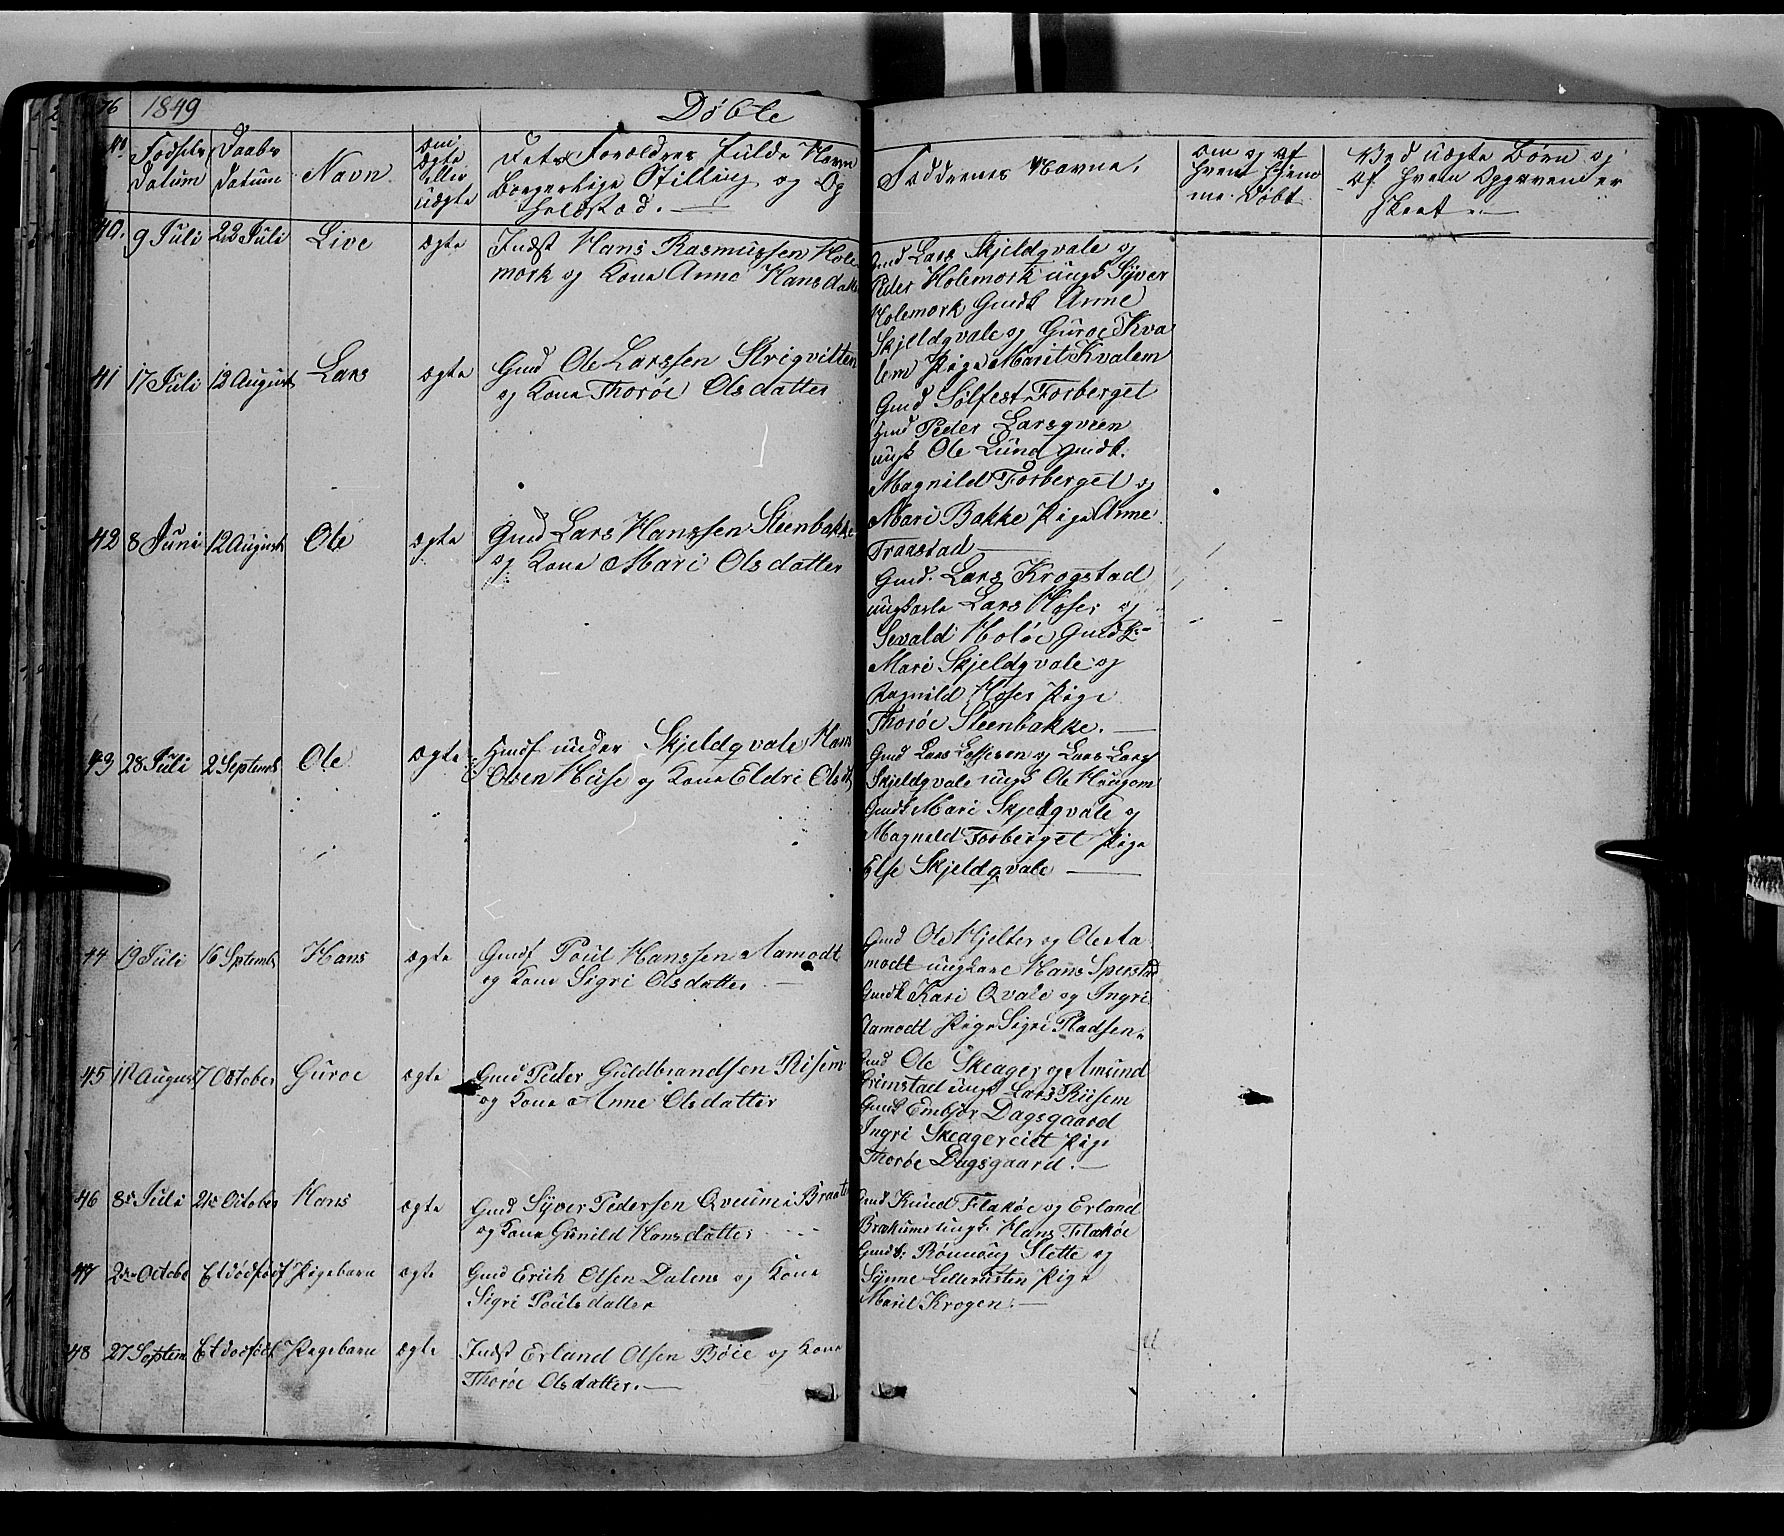 76 1849 Døbte
No Fødsels Datum Daabs Datum Navn om ægte eller uægte Foræældres fulde Navn Borgerlige Stilling og Op holdsted. Faddernes Navne. om og af hvem hjem me Døbt Ved uægte Børn og Af hvem Opgaven er skeet
40. 9 Juli 22 Juli Live ægte Indst Hans Rasmussen Hole
mork og Kone Anne Hansdatt
Gmd Lars Skjeldqvale og
Peder Holemork ungk Syver
Holemork Gmdk Anne
Skjeldqvale og Guroe Kva
lem Pige Marit Kvalem
41 17 Juli 12 August Lars ægte Gmd Ole Larssen Strigvitten
og Kone Thoròe Olsdatter
Gmd Sølfest Forberget
Gmd Peder Larsqveen
ungk Ole Lund gmdk.
Magnild Forberget og
Mari Bakke Pige Anne
Transtad
42 8 Juni 12 August Ole ægte Gmd Lars Hanssen Steenbakke
og Kone Mari Olsdatter
Gmd. Lars Krogstad
ungkarle Lars Hoser og
Sevald Holòe Gmdk
Mari Skjeldqvale og
Ragnild Hoser Pige
Thoròe Steenbakke.
43 28 Juli 2 Septemb Ole ægte Husf under Skjeldqvale Hans
Olsen Huse og Kone Eldri Olsd
Gmd Lars og Lars Lars
Skjeldqvale ungk Ole Haugom
Gmdk Mari Skjelqvale og
Magnild Forberget Pige
Else Skjeldqvale
44 19 Juli 16 Septemb Hans ægte Gmdf Poul Hanssen Aamodt
og Kone Sigri Olsdatter
Gmd Ole Hjelter og Ole Aa
modt ungkare Hans Sperstad
Gmdk Kari Qvale og Ingri
Aamodt Pige Sigri Pladsen.
45 11 August 7 October Guroe ægte Gmd Peder Guldbrandsen Risem
og Kone Anne Olsdatter
Gmd Ole Skeager og Amund
Grimstad ungk Lars Riisem
Gmdk Embjør Dagsgaard
Ingri Skeagereitt Pige
Thoròe Dagsgaard.
46 8de Juli 21de October Hans ægte Gmd Syver Pedersen Qveum i Braate
og Kone Gunild Hansdatter
Gmd Knud Flakòe og Erland
Brækume ungk. Hans Flækòe
Gmdk. Rònnaug Slette og
Synne Lillerusten Pige
Marit Krogen.
47 2den Octobe Et dødfødt Pigebarn ægte Gmd Erich Olsen Dalens og Kone
Sigri Poulsdatter
48 27 Septem Et dødfødt Pigebarn ægte Indst Erland Olsen Bòie og Kone
Thoròe Olsdatter.